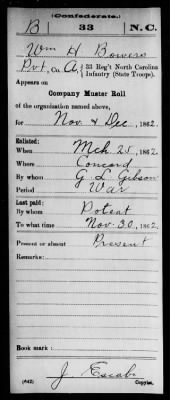 (Confederate.)
B 33 N.C.
Wm H Bowers
Pvt, Co. A, 33 Reg't North Carolina
Infantry (State Troops).
Appears on
Company Muster Roll
of the organization named above,
for Nov & Dec, 1862.
Enlisted:
When Mch 25, 1862.
Where Concord
By whom G. L. Gibson
Period War
Last paid:
By whom Poteat
To what time Nov. 30, 1862.
Present or absent Present
Remarks:
Book mark:
(642) J. Copyist.